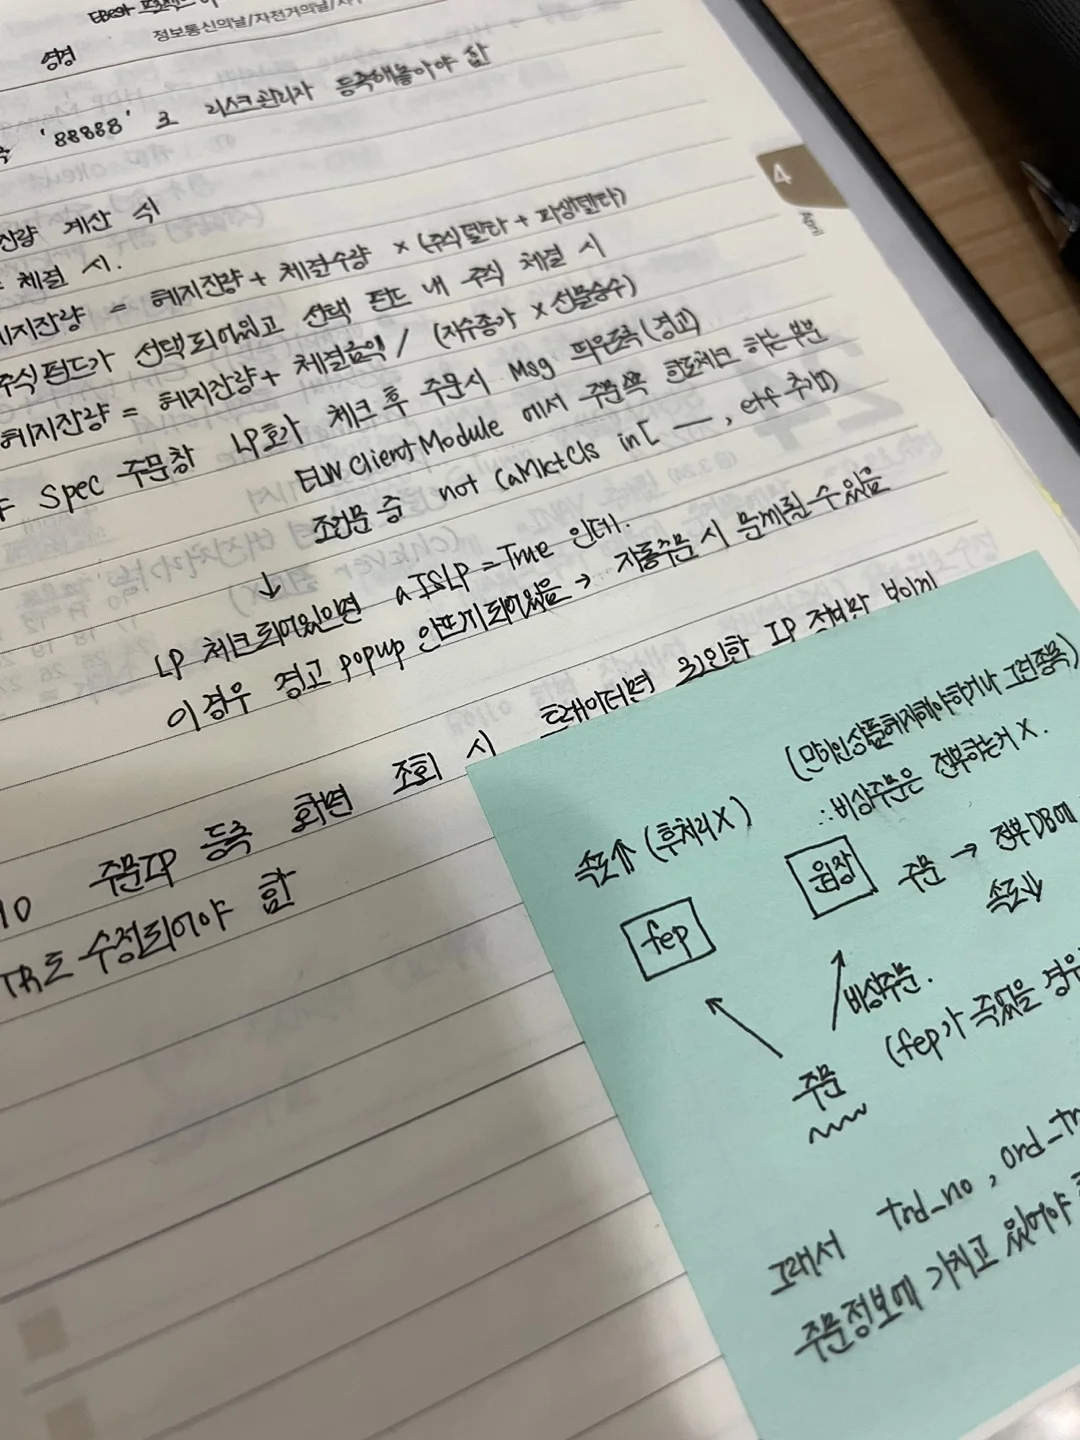 정보통신의날/자전거의날/
설명
'88888' 로 리스크관리자 등록해놓아야 함
잔량 계산 식
체결 시.
헤지잔량 = 헤지잔량 + 체결수량 × (주식델타 + 파생델타)
주식펀드가 선택되어있고 선택 펀드 내 주식 체결 시
헤지잔량 = 헤지잔량 + 체결금액 / (지수종가 × 선물승수)
Spec 주문창 LP호가 체크 후 주문시 Msg 띄우도록 (경고)
ELW Client Module 에서 주문쪽 한도체크 하는부분
조건문 중 not (aMktCls in [ ―, etf 추가)
↓
LP 체크되어있으면 aISLP = True 인데.
이 경우 경고 popup 안뜨게 되어있음 → 자동주문 시 문제될 수 있음
주문IP 등록 화면 조회 시 트레이더면 본인한 IP 정보만 보이게
TR도 수정되어야 함
4
(만히인상품헤지해야하거나 그런종목)
∴비상주문은 전부하는거 X.
속도↑ (후처리X)
원장 주문 → 전부 DB에
속도↓
fep
비상주문.
(fep가 죽었을 경우
주문
그래서 trd_no, ord_tr
주문정보에 가지고 있어야